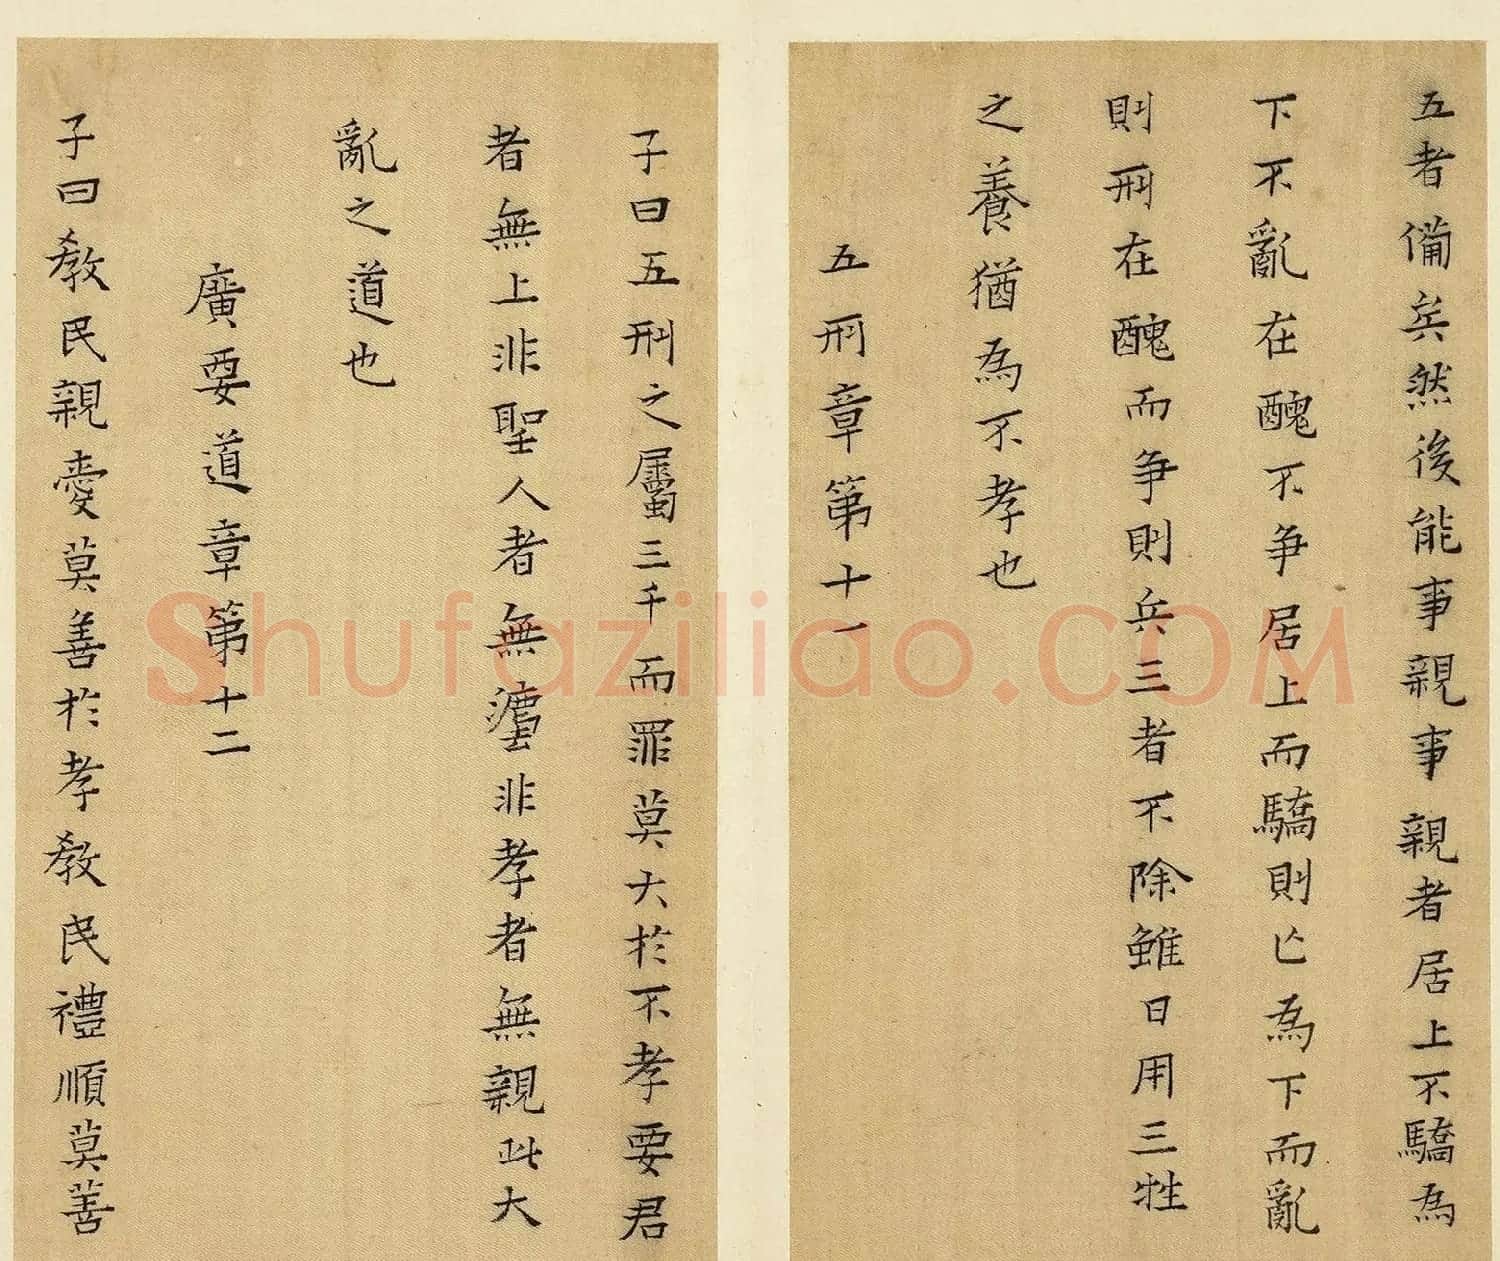 五者備矣然後能事親事親者居上不驕為
下不亂在醜不争居上而驕則亡為下而亂
則刑在醜而争則兵三者不除雖日用三牲
之養猶為不孝也
五刑章第十一
子曰五刑之屬三千而罪莫大於不孝要君
者無上非聖人者無灋非孝者無親此大
亂之道也
廣要道章第十二
子曰教民親愛莫善於孝教民禮順莫善
Shufaziliao.COM